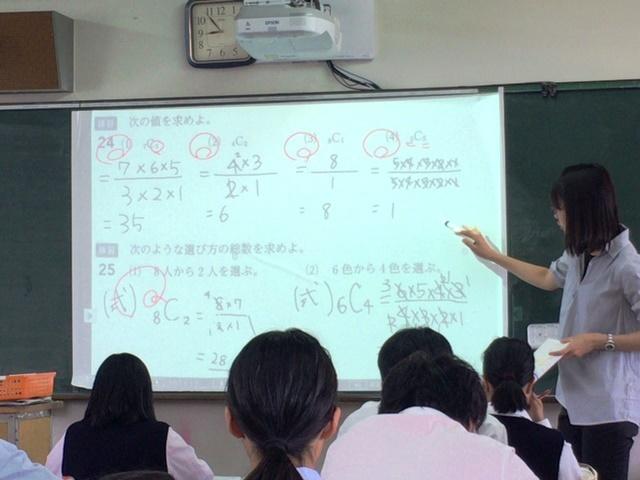 EPSON
練習 次の値を求めよ。
24 (1) ₇C₃ (2) ₄C₂ (3) ₈C₁ (4) ₅C₅
= 7×6×5 / 3×2×1 = 4×3 / 2×1 = 8 / 1 = 5×4×3×2×1 / 5×4×3×2×1
= 35 = 6 = 8 = 1
練習 次のような選び方の総数を求めよ。
25 (1) 8人から2人を選ぶ。 (2) 6色から4色を選ぶ。
(式) ₈C₂ = 8×7 / 2×1 (式) ₆C₄ = 6×5×4×3 / 4×3×2×1
= 28